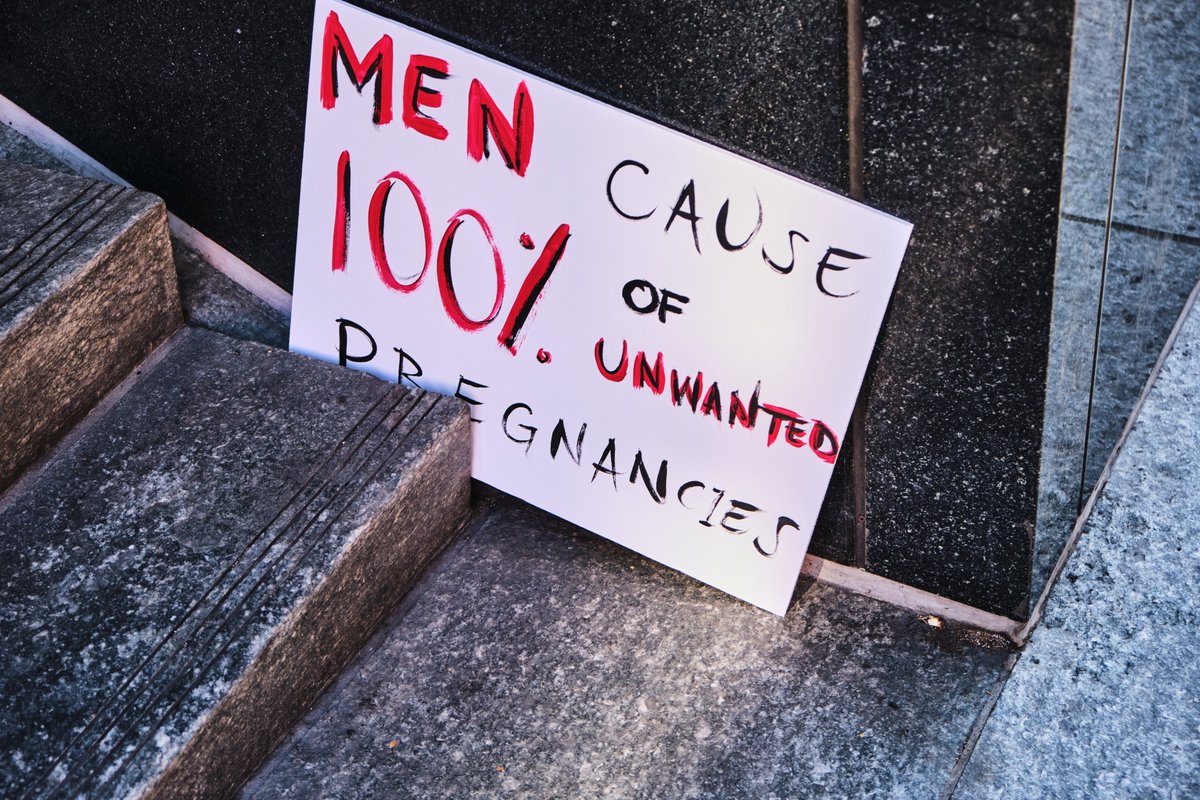 MEN CAUSE
100% OF
UNWANTED
PREGNANCIES